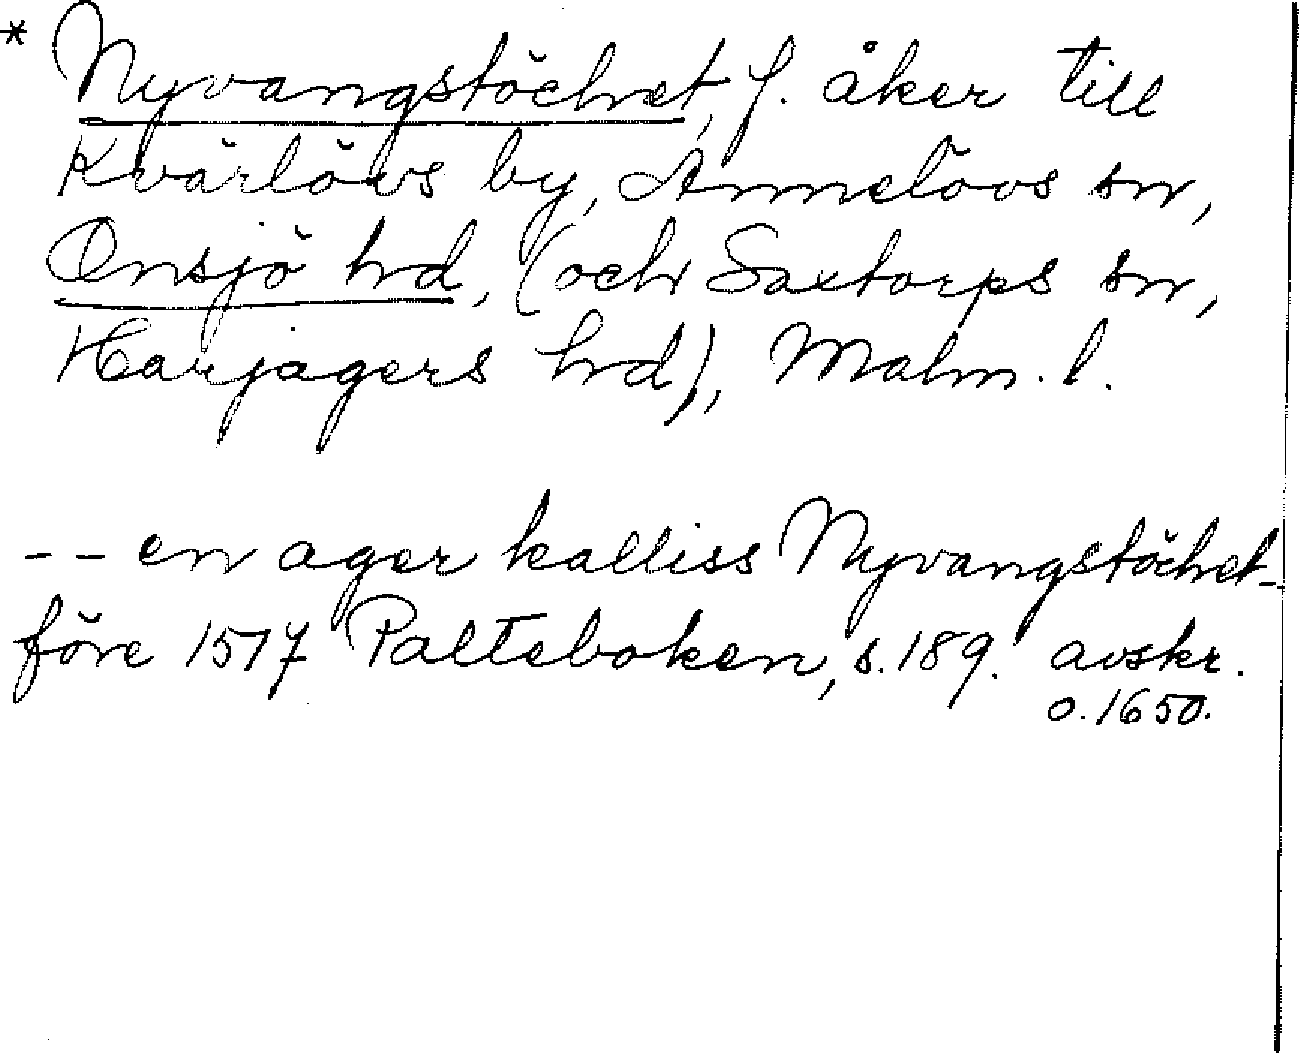 * Nyvangstöchet, f. åker till
Kvärlövs by, Annelövs sn,
Onsjö hrd, (och Saxtorps sn,
Harjagers hrd), Malm. l.
-- en ager kalliss Nyvangstöchet -
före 1517 Palteboken, s. 189. avskr.
o. 1650.